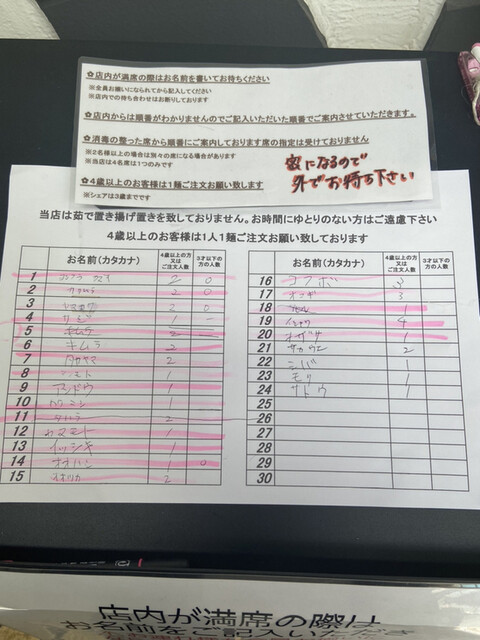 ✿店内が満席の際はお名前を書いてお待ちください
※全員お揃いになられてから記入してください
※店内での待ち合わせはお断りしております
✿店内からは順番がわかりませんのでご記入いただいた順番でご案内させていただきます。
✿消毒の整った席から順番にご案内しております席の指定は受けておりません
※2名様以上の場合は別々の席になる場合があります
※当店は4名席は1つのみです
密になるので
外でお待ち下さい
✿4歳以上のお客様は1麺ご注文お願い致します
※シェアは3歳までです
当店は茹で置き揚げ置きを致しておりません。お時間にゆとりのない方はご遠慮下さい
4歳以上のお客様は1人1麺ご注文お願い致しております
お名前(カタカナ) 4歳以上の方又はご注文人数 3才以下の方の人数
1 2 0
2 2 0
3 2 0
4 1 -
5 キムラ 2 -
6 キムラ 2
7 タカヤマ 2
8 1
9 アンドウ 1
10 1
11 2
12 ヤマモト 1
13 イッシキ 1
14 オオハシ 1 0
15 2
お名前(カタカナ) 4歳以上の方又はご注文人数 3才以下の方の人数
16 コクボ 3
17 3
18 1
19 4
20 オザワ 1
21 サカウエ 2
22 シバ 1
23 モリ 1
24 サトウ 1
25
26
27
28
29
30
店内が満席の際は
お名前をご記入いただき